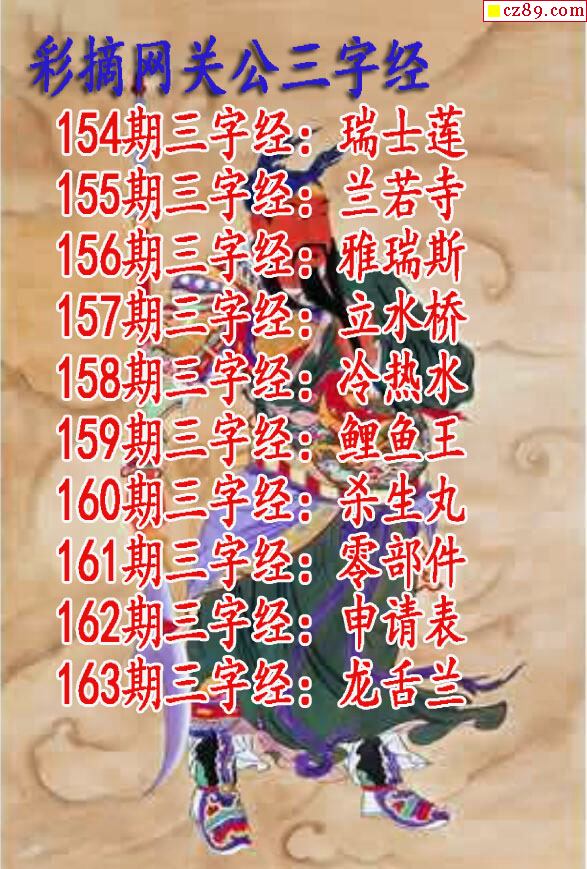 cz89.com
彩摘网关公三字经
154期三字经：瑞士莲
155期三字经：兰若寺
156期三字经：雅瑞斯
157期三字经：立水桥
158期三字经：冷热水
159期三字经：鲤鱼王
160期三字经：杀生丸
161期三字经：零部件
162期三字经：申请表
163期三字经：龙舌兰